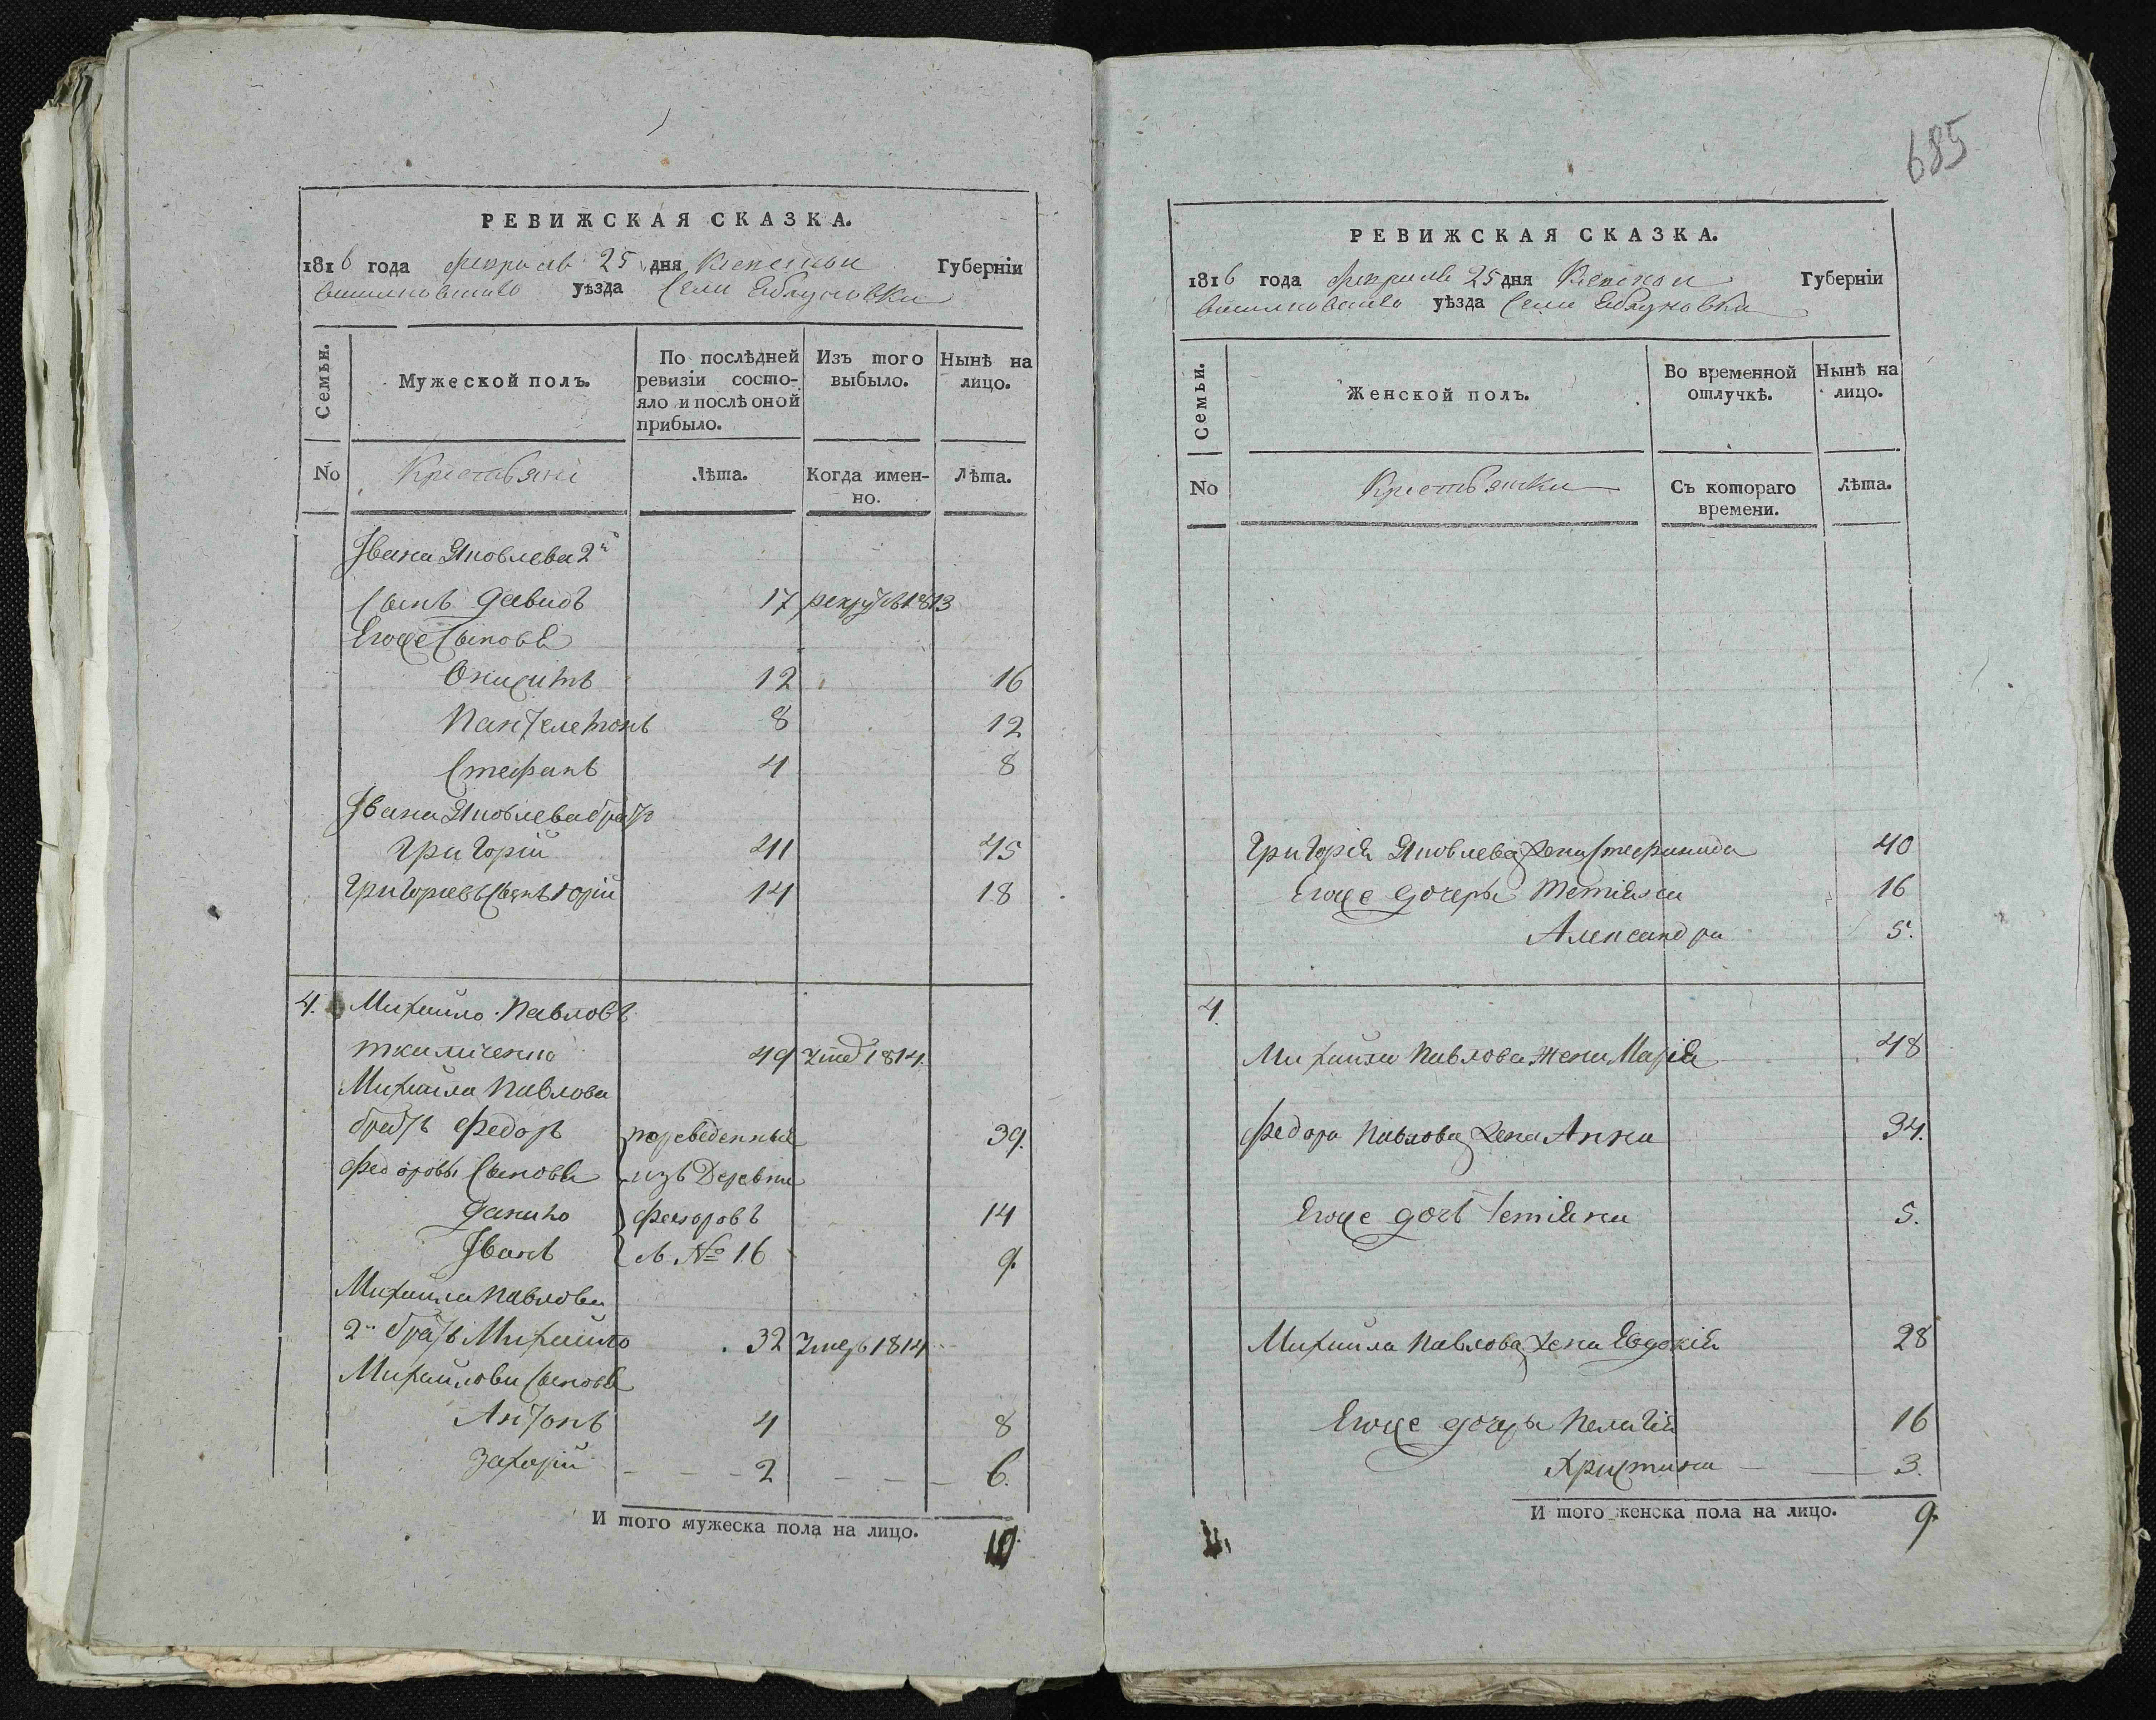 РЕВИЖСКАЯ СКАЗКА.
1816 года февраля 25 дня Киевской Губерніи
Васильковского уѣзда Села Яблуновки
Семьи.
Мужеской полъ.
По послѣдней ревизіи состояло и послѣ оной прибыло.
Изъ того выбыло.
Нынѣ на лицо.
No
Крестьяне
Лѣта.
Когда именно.
Лѣта.
Ивана Яковлева 2й
Сынъ Давидъ 17 рекрутъ 1813
Егоже Сыновья
Онисимъ 12 16
Пантелемонъ 8 12
Стефанъ 4 8
Ивана Яковлева братъ
Григорій 41 45
Григорьевъ Сынъ Юрій 14 18
4. Михайло Павловъ
ткаличенко 49 Умер 1814.
Михайла Павлова
братъ Федоръ переведенный 39.
Федоровы Сыновья изъ Деревни
Данило 14
Иванъ № 16 9.
Михайла Павлова
2й братъ Михайло 32 Умеръ 1814
Михайловы Сыновья
Антонъ 4 8
Захарій - - - 2 - - - 6.
И того мужеска пола на лицо. 10.
685
РЕВИЖСКАЯ СКАЗКА.
1816 года февраля 25 дня Киевской Губерніи
Васильковского уѣзда Села Яблуновки
Семьи.
Женской полъ.
Во временной отлучкѣ.
Нынѣ на лицо.
No
Крестьянки
Съ котораго времени.
Лѣта.
Григорія Яковлева жена Стефанида 40
Егоже дочеры Тетіяна 16
Александра 5.
4.
Михайла Павлова жена Марія 48
Федора Павлова жена Анна 34.
Егоже дочь Тетіяна 5.
Михайла Павлова жена Евдокія 28
Егоже дочеры Пелагія 16
Христина 3.
И того женска пола на лицо. 9.